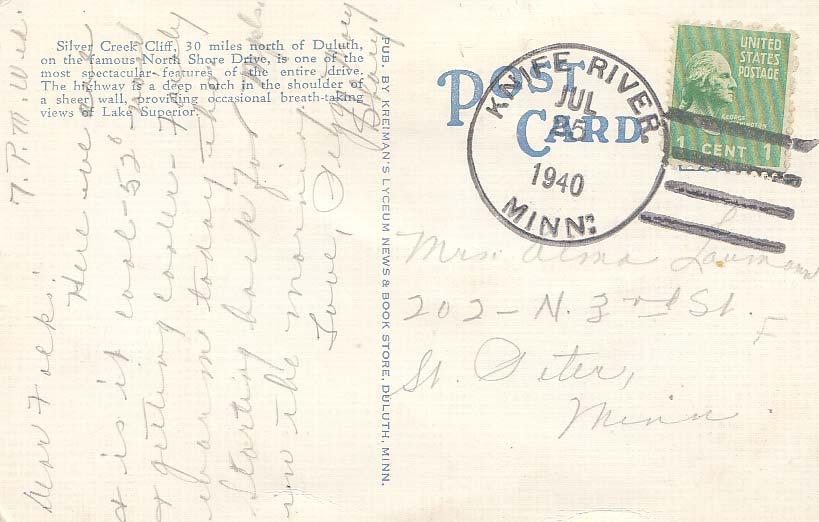 Silver Creek Cliff, 30 miles north of Duluth,
on the famous North Shore Drive, is one of the
most spectacular features of the entire drive.
The highway is a deep notch in the shoulder of
a sheer wall, providing occasional breath-taking
views of Lake Superior.
7. P.M. Wed.
Dear Folks:
Here we are
& is it cool - 52° - and
& getting cooler -
warm today
Starting back for
in the morning
Love,
PUB. BY KREIMAN'S LYCEUM NEWS & BOOK STORE, DULUTH, MINN.
POST
CARD
KNIFE RIVER.
JUL
25
1940
MINN.
UNITED
STATES
POSTAGE
GEORGE
WASHINGTON
1 CENT 1
Mrs. Alma
202 - N. 3rd St.
St. Peter,
Minn